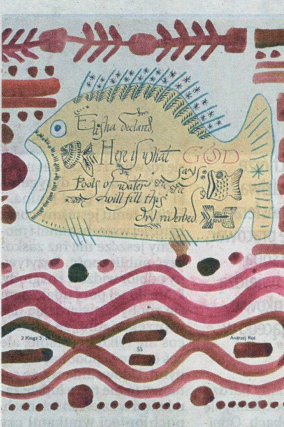 Elisha declared,
Here is what GOD
says
Pools of water
will fill this
dry riverbed
2 Kings 3,
Andrzej